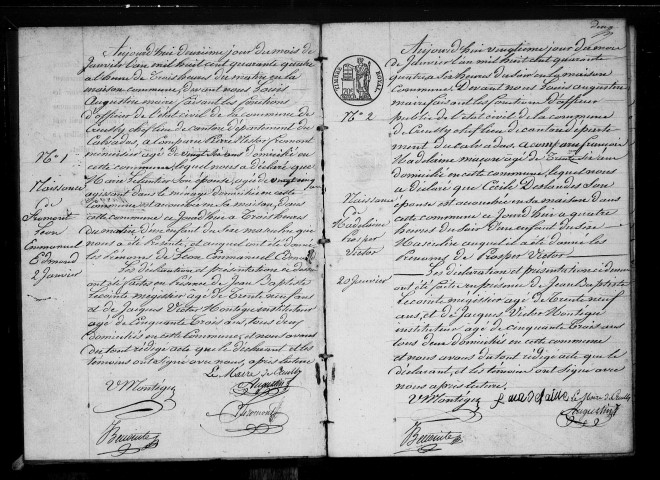 Aujourd'hui deuxième jour du mois de
Janvier l'an mil huit cent quarante quatre
à heure de trois heures du matin en la
maison commune, devant nous Louis
Augustin maire faisant les fonctions
d'officier de l'état civil de la commune de
Creully chef lieu de canton département du
Calvados, a comparu Pierre Fremont
menuisier agé de vingt six ans domicilié en
cette commune, lequel nous a déclaré que
Marie son épouse, agée de vingt cinq ans
agissant dans le ménage domiciliée en cette
commune est accouchée en sa maison, dans
cette commune ce Jourd'hui à Trois heures
du matin d'un enfant du sexe masculin que
nous a été présenté, et auquel ont été donnés
les prénoms de Léon Emmanuel Edmond
Les déclaration et présentation ci dessus
ont été faites en présence de Jean Baptiste
Lecointe magister agé de Trente neuf ans
et de Jacques Victor Montigny instituteur
agé de Cinquante Trois ans, tous deux
domiciliés en cette Commune, et nous avons
du tout rédigé acte que le déclarant et les
témoins ont signé avec nous après lecture
Le Maire de Creully
V Montigny
Augustin
Fremont
Lecointe
N° 1
Naissance
de
Fremont
Léon
Emmanuel
Edmond
2 Janvier
deux
TIMBRE ROYAL
Aujourd'hui vingtième jour du mois
de Janvier l'an mil huit cent quarante
quatre à six heures du soir en la maison
Commune Devant nous Louis Augustin
maire faisant les fonctions d'officier
public de l'état civil de la commune
de Creully chef lieu de canton départe
ment du Calvados, a comparu François
Madelaine maçon agé de Trente six ans
domicilié en cette commune, lequel nous
a déclaré que Cécile Deslandes son
épouse est accouchée en sa maison dans
cette commune ce Jourd'hui à quatre
heures du soir d'un enfant du sexe
Masculin auquel il a été donné les
prénoms de Prosper Victor
Les déclaration et présentation ci dessus
ont été faites en présence de Jean Baptiste
Lecointe magister agé de Trente neuf
ans, et de Jacques Victor Montigny
instituteur agé de cinquante Trois ans
tous deux domiciliés en cette commune
et nous avons du tout rédigé acte que le
déclarant, et les témoins ont signé avec
nous après lecture,
V Montigny
Le Maire de Creully
Augustin
Lecointe
N° 2
Naissance
de
Madelaine
Prosper
Victor
20 Janvier